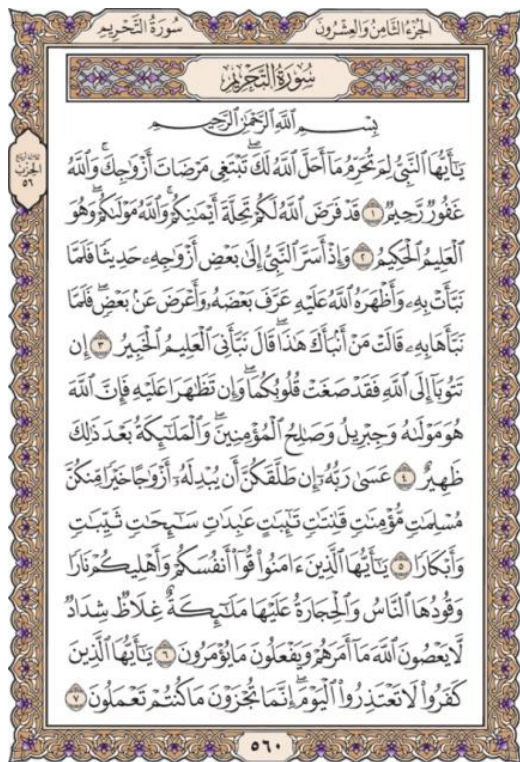 الجزء الثامن والعشرون
سورة التحريم
سُورَةُ التَّحۡرِيمِ
بِسۡمِ ٱللَّهِ ٱلرَّحۡمَٰنِ ٱلرَّحِيمِ
يَٰٓأَيُّهَا ٱلنَّبِيُّ لِمَ تُحَرِّمُ مَآ أَحَلَّ ٱللَّهُ لَكَۖ تَبۡتَغِي مَرۡضَاتَ أَزۡوَٰجِكَۚ وَٱللَّهُ
غَفُورٞ رَّحِيمٞ ١ قَدۡ فَرَضَ ٱللَّهُ لَكُمۡ تَحِلَّةَ أَيۡمَٰنِكُمۡۚ وَٱللَّهُ مَوۡلَىٰكُمۡۖ وَهُوَ
ٱلۡعَلِيمُ ٱلۡحَكِيمُ ٢ وَإِذۡ أَسَرَّ ٱلنَّبِيُّ إِلَىٰ بَعۡضِ أَزۡوَٰجِهِۦ حَدِيثٗا فَلَمَّا
نَبَّأَتۡ بِهِۦ وَأَظۡهَرَهُ ٱللَّهُ عَلَيۡهِ عَرَّفَ بَعۡضَهُۥ وَأَعۡرَضَ عَنۢ بَعۡضٖۖ فَلَمَّا
نَبَّأَهَا بِهِۦ قَالَتۡ مَنۡ أَنۢبَأَكَ هَٰذَاۖ قَالَ نَبَّأَنِيَ ٱلۡعَلِيمُ ٱلۡخَبِيرُ ٣ إِن
تَتُوبَآ إِلَى ٱللَّهِ فَقَدۡ صَغَتۡ قُلُوبُكُمَاۖ وَإِن تَظَٰهَرَا عَلَيۡهِ فَإِنَّ ٱللَّهَ
هُوَ مَوۡلَىٰهُ وَجِبۡرِيلُ وَصَٰلِحُ ٱلۡمُؤۡمِنِينَۖ وَٱلۡمَلَٰٓئِكَةُ بَعۡدَ ذَٰلِكَ
ظَهِيرٌ ٤ عَسَىٰ رَبُّهُۥٓ إِن طَلَّقَكُنَّ أَن يُبۡدِلَهُۥٓ أَزۡوَٰجًا خَيۡرٗا مِّنكُنَّ
مُسۡلِمَٰتٖ مُّؤۡمِنَٰتٖ قَٰنِتَٰتٖ تَٰٓئِبَٰتٍ عَٰبِدَٰتٖ سَٰٓئِحَٰتٖ ثَيِّبَٰتٖ
وَأَبۡكَارٗا ٥ يَٰٓأَيُّهَا ٱلَّذِينَ ءَامَنُواْ قُوٓاْ أَنفُسَكُمۡ وَأَهۡلِيكُمۡ نَارٗا
وَقُودُهَا ٱلنَّاسُ وَٱلۡحِجَارَةُ عَلَيۡهَا مَلَٰٓئِكَةٌ غِلَاظٞ شِدَادٞ
لَّا يَعۡصُونَ ٱللَّهَ مَآ أَمَرَهُمۡ وَيَفۡعَلُونَ مَا يُؤۡمَرُونَ ٦ يَٰٓأَيُّهَا ٱلَّذِينَ
كَفَرُواْ لَا تَعۡتَذِرُواْ ٱلۡيَوۡمَۖ إِنَّمَا تُجۡزَوۡنَ مَا كُنتُمۡ تَعۡمَلُونَ ٧
الحزب
٥٦
٥٦٠